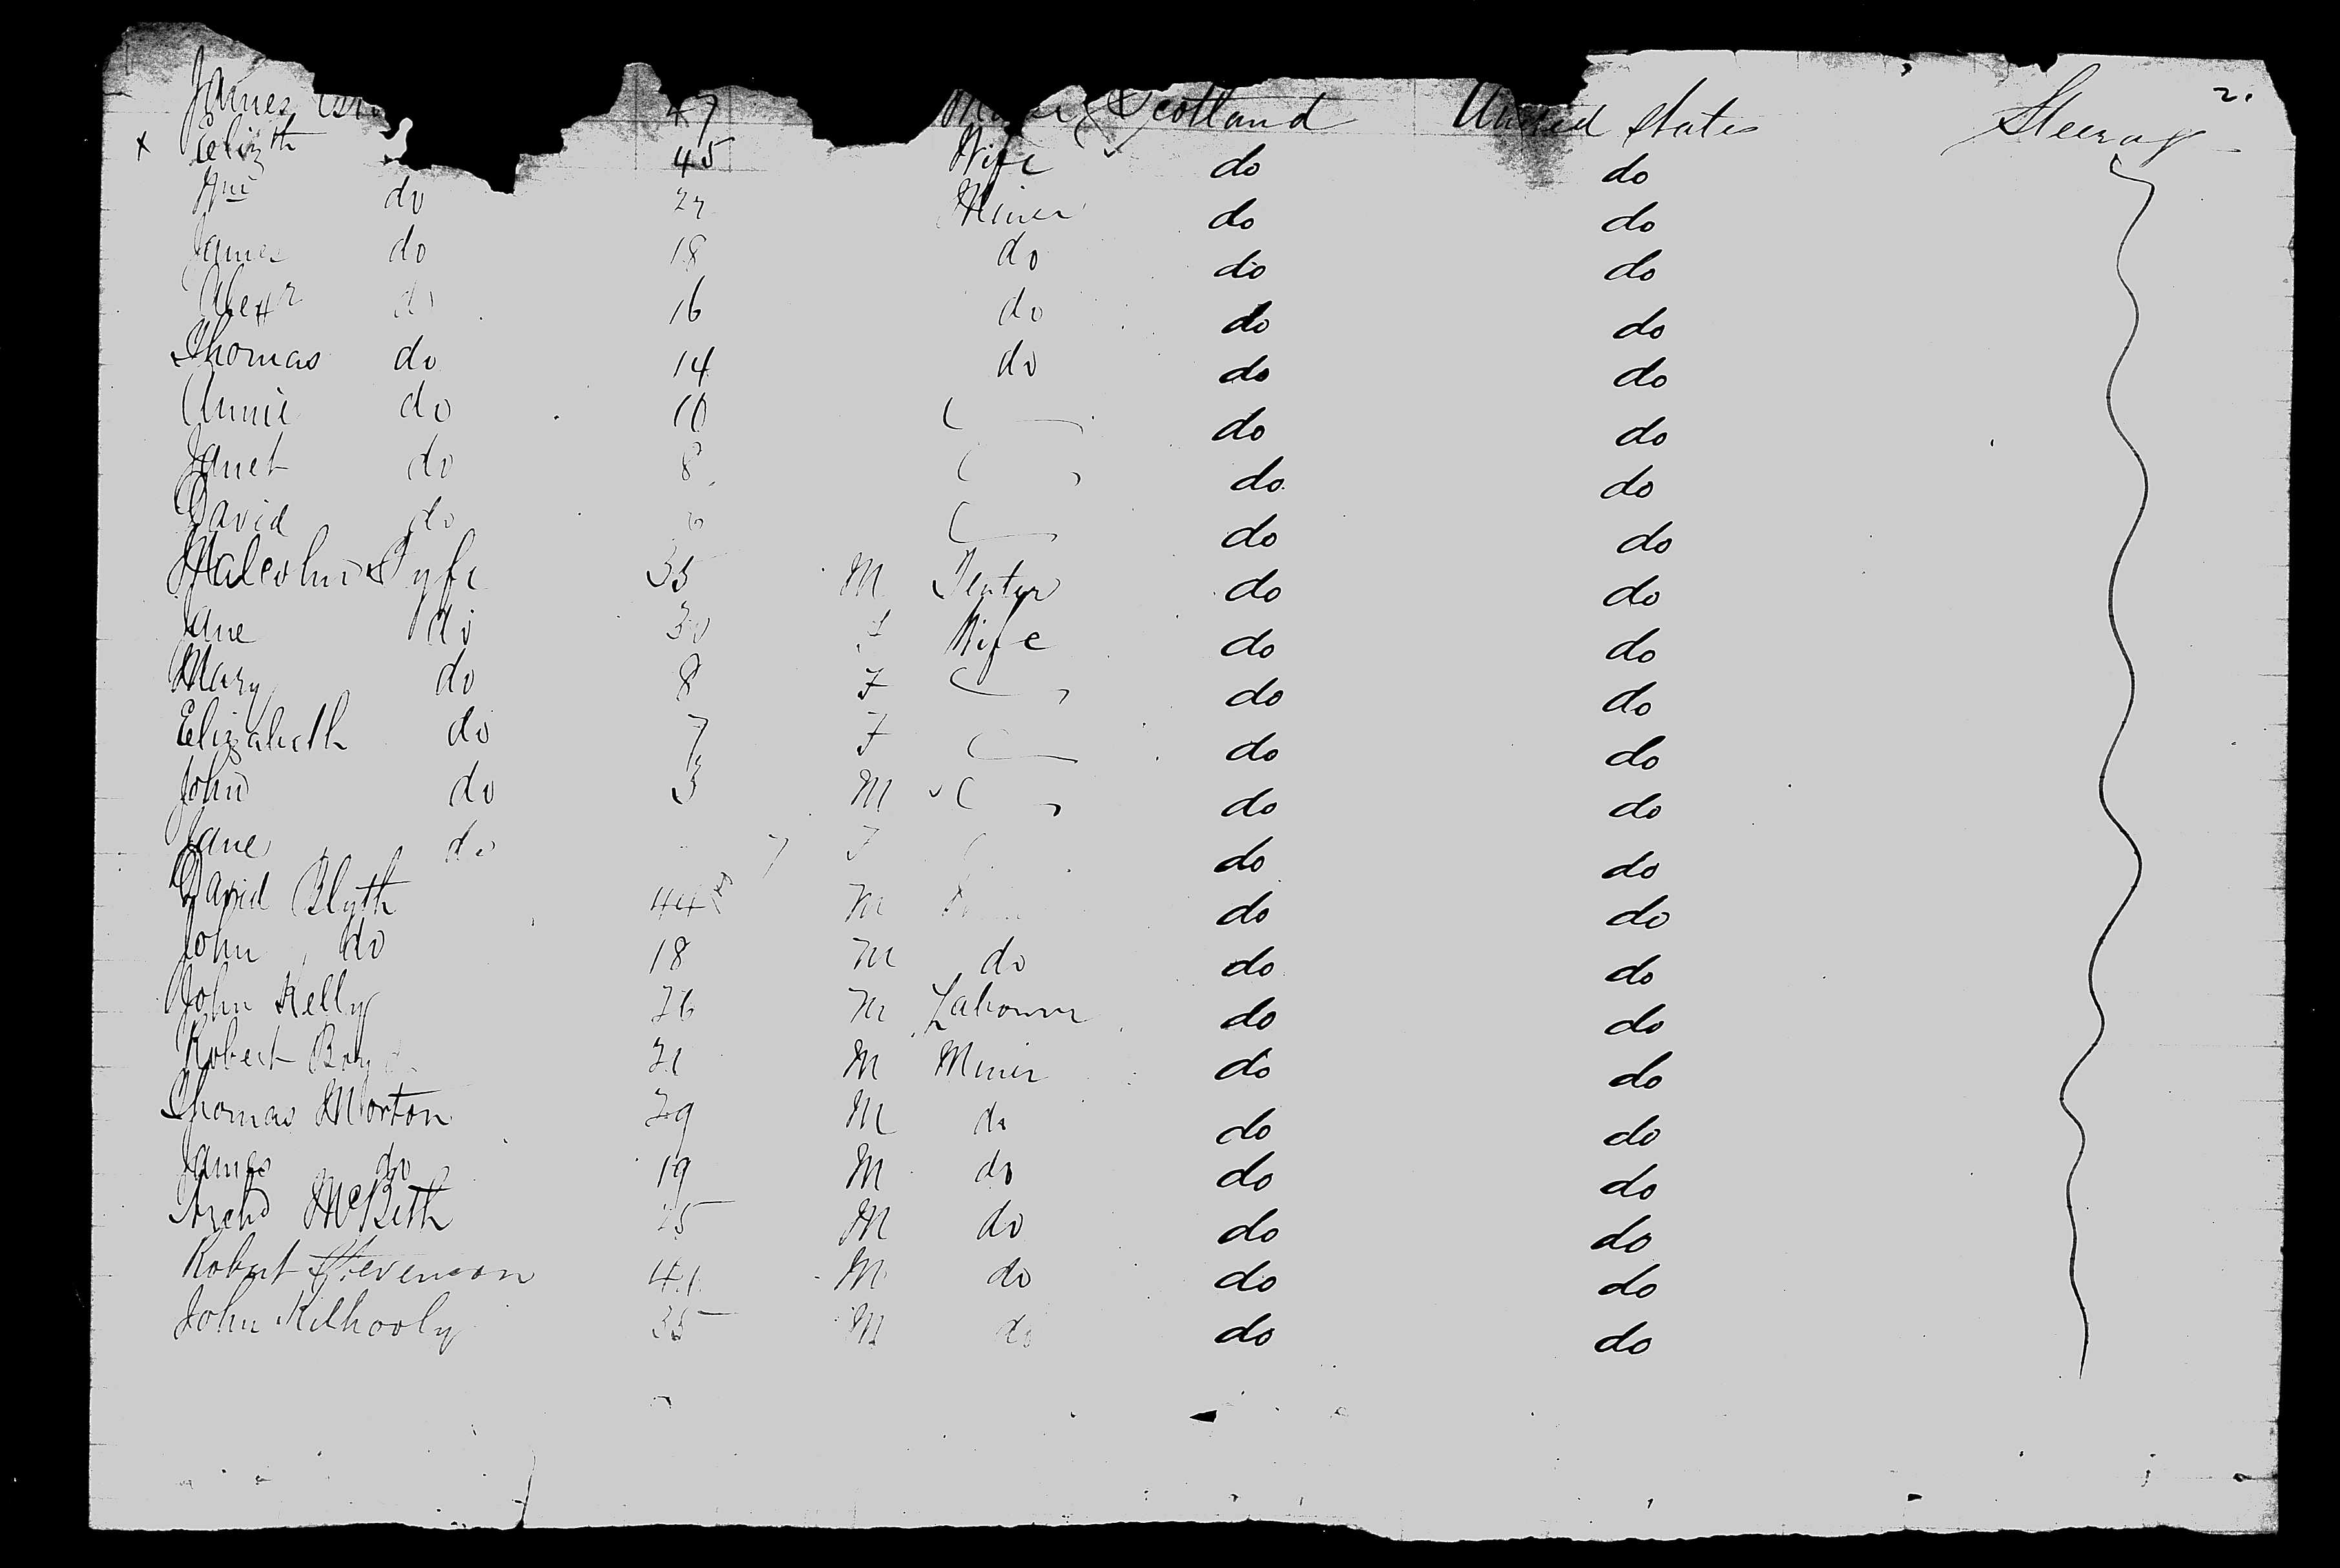 2.
James 47 Scotland United States Steerage
x Elizth 45 Wife do do
do 24 Miner do do
James do 18 do do do
Alexr do 16 do do do
Thomas do 14 do do do
Annie do 10 do do
Janet do 8 do do
David do 6 do do
Malcolm Fyfe 35 M Tenter do do
Jane do 30 F Wife do do
Mary do 8 F do do
Elizabeth do 7 F do do
John do 3 M do do
Jane do F do do
David Blyth 44 M do do
John do 18 M do do do
John Kelly 26 M Labourer do do
Robert Boyd 21 M Miner do do
Thomas Morton 29 M do do do
James do 19 M do do do
Archd McBeth 25 M do do do
Robert Stevenson 41 M do do do
John Kilhooly 35 M do do do